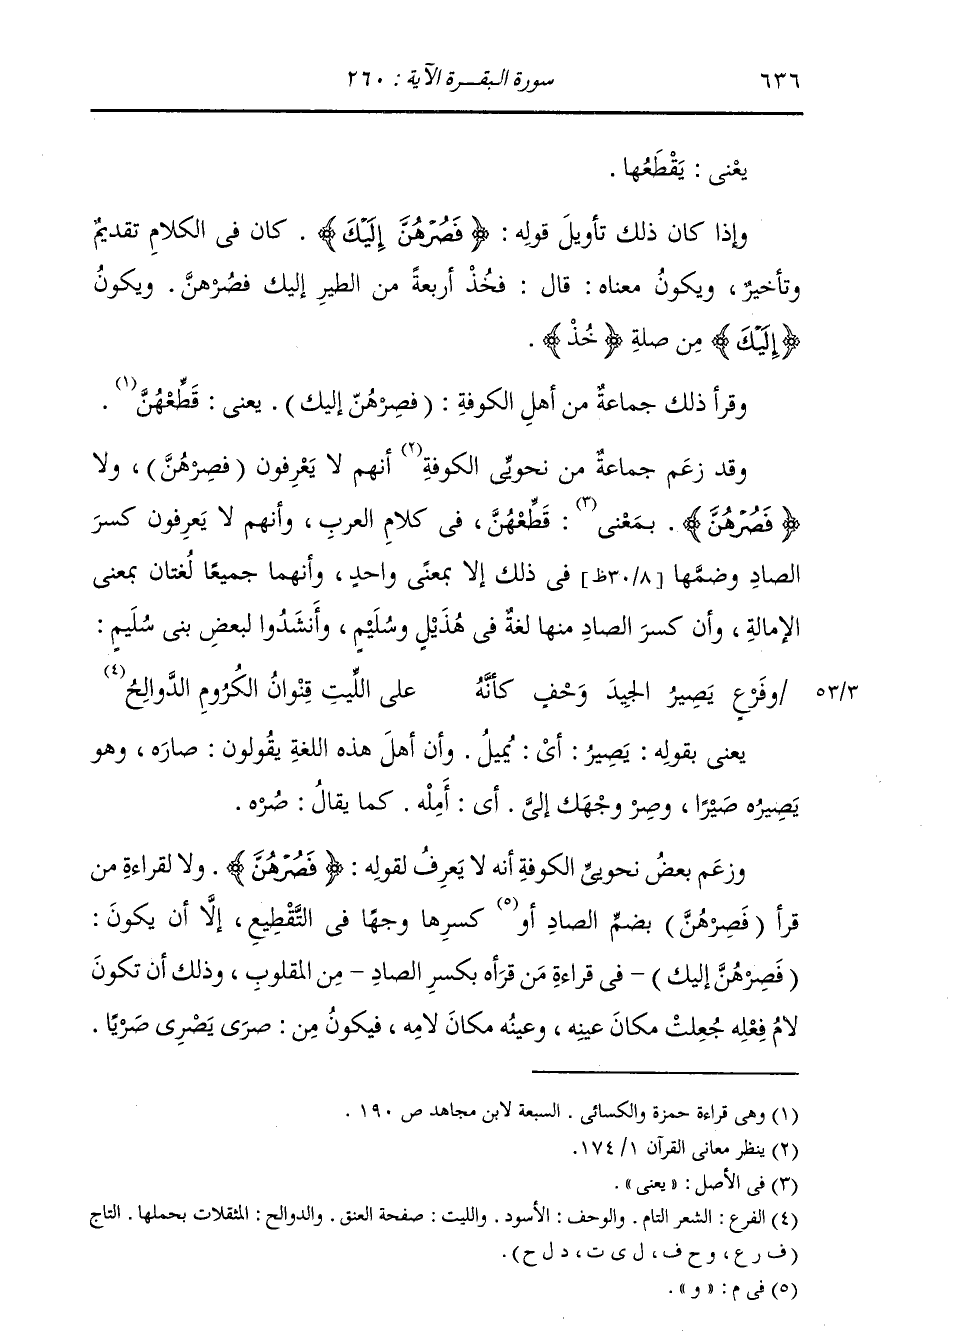 ٦٣٦ سورة البقــرة الآية : ٢٦٠
يعْنى : يَقْطَعُها .
وإذا كان ذلك تأويلَ قولِه : ﴿ فَصُرْهُنَّ إِلَيْكَ ﴾ . كان فى الكلامِ تقديمٌ
وتأخيرٌ ، ويكونُ معناه : قال : فخُذْ أربعةً من الطيرِ إليك فصُرْهنَّ . ويكونُ
﴿ إِلَيْكَ ﴾ مِن صلةِ ﴿ خُذْ ﴾ .
وقرأ ذلك جماعةٌ من أهلِ الكوفةِ : ( فصِرْهُنّ إليك ) . يعنى : قَطِّعْهُنَّ(١) .
وقد زعَم جماعةٌ من نحويِّى الكوفةِ(٢) أنهم لا يَعْرِفون ( فصِرْهُنَّ ) ، ولا
﴿ فَصُرْهُنَّ ﴾ . بمَعْنى(٣) : قَطِّعْهُنَّ ، فى كلامِ العربِ ، وأنهم لا يَعرِفون كسرَ
الصادِ وضمَّها [٣٠/٨ظ] فى ذلك إلا بمعنًى واحدٍ ، وأنهما جميعًا لُغتان بمعنى
الإمالةِ ، وأن كسرَ الصادِ منها لغةٌ فى هُذَيْلٍ وسُلَيْمٍ ، وأَنشَدُوا لبعضِ بنى سُلَيمٍ :
٥٣/٣ /وفَرْعٍ يَصِيرُ الجِيدَ وَحْفٍ كأنَّهُ على اللِّيتِ قِنْوانُ الكُرُومِ الدَّوالِحُ(٤)
يعنى بقولِه : يَصِيرُ : أىْ : يُميلُ . وأن أهلَ هذه اللغةِ يقُولون : صارَه ، وهو
يَصِيرُه صَيْرًا ، وصِرْ وجْهَك إلىَّ . أى : أَمِلْه . كما يقالُ : صُرْه .
وزعَم بعضُ نحويىِّ الكوفةِ أنه لا يَعرِفُ لقولِه : ﴿ فَصُرْهُنَّ ﴾ . ولا لقراءةِ من
قرأ ( فَصِرْهُنَّ ) بضمِّ الصادِ أو(٥) كسرِها وجهًا فى التَّقْطيعِ ، إلَّا أن يكونَ :
( فَصِرْهُنَّ إليك ) – فى قراءةِ مَن قرَأه بكسرِ الصادِ – مِن المقلوبِ ، وذلك أن تكونَ
لامُ فِعْلِه جُعِلتْ مكانَ عينِه ، وعينُه مكانَ لامِه ، فيكونُ مِن : صرَى يَصْرِى صَرْيًا .
(١) وهى قراءة حمزة والكسائى . السبعة لابن مجاهد ص ١٩٠ .
(٢) ينظر معانى القرآن ١/ ١٧٤.
(٣) فى الأصل : « يعنى » .
(٤) الفرع : الشعر التام . والوحف : الأسود . والليت : صفحة العنق . والدوالح : المثقلات بحملها . التاج
(ف ر ع ، و ح ف ، ل ى ت ، د ل ح) .
(٥) فى م : « و » .